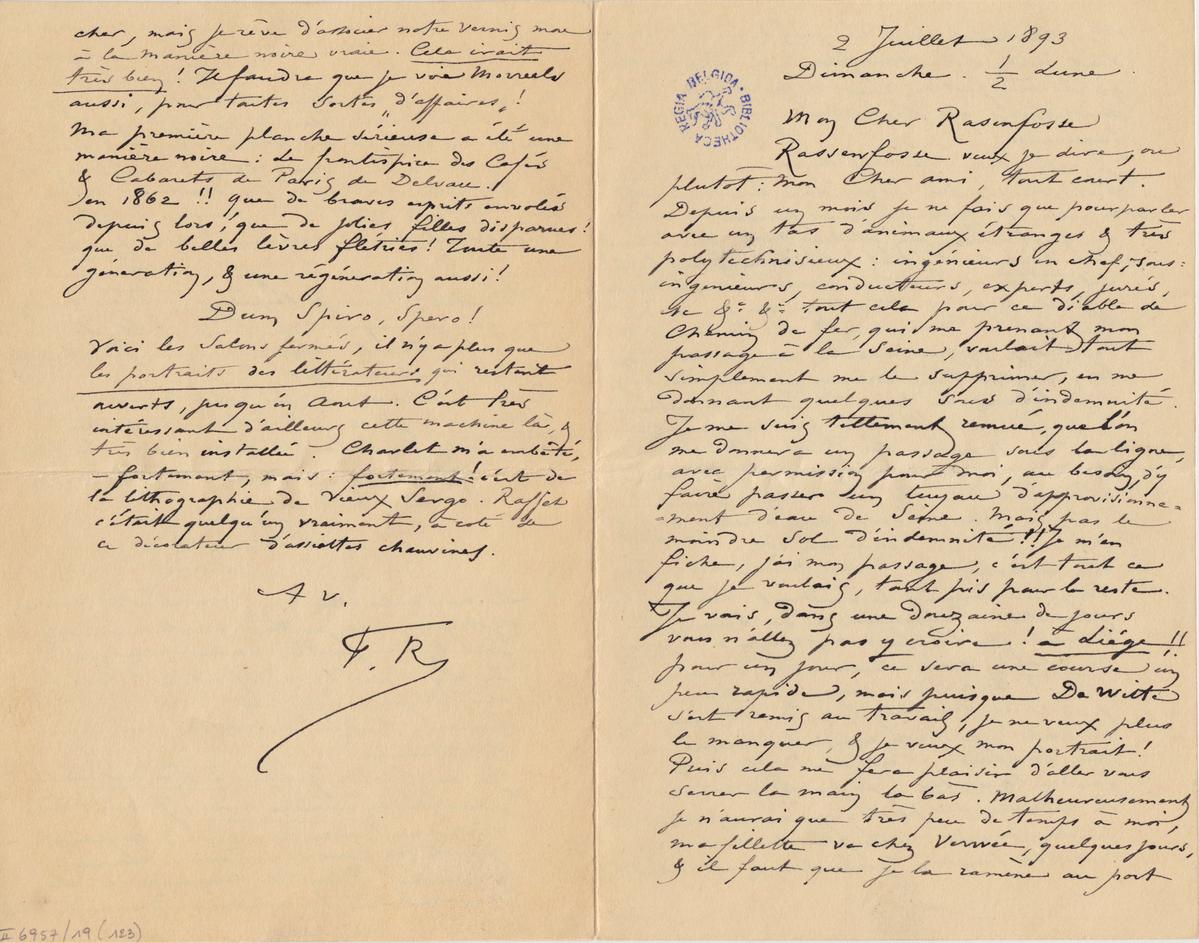 2 Juillet 1893
Dimanche. ½ Lune
Mon Cher Rasenfosse
Rassenfosse veux je dire, ou
plutôt : mon Cher ami, tout court.
Depuis un mois je ne fais que pourparler
avec un tas d'animaux étranges & très
polytechnisieux : ingénieurs en chef, sous-
ingénieurs, conducteurs, experts, jurés,
&c &c tout cela pour ce diable de
Chemin de fer, qui me prenant mon
passage à la Seine, voulait tout
simplement me le supprimer, en me
donnant quelques sous d'indemnité.
Je me suis tellement remué, que l'on
me donnera un passage sous la ligne,
avec permission pour moi, au besoin d'y
faire passer un tuyau d'approvisionne=
=ment d'eau de Seine. Mais pas le
moindre sol d'indemnité !! Je m'en
fiche, j'ai mon passage, c'est tout ce
que je voulais, tant pis pour le reste.
Je vais, dans une douzaine de jours
vous n'allez pas y croire ! à Liége !!
pour un jour, ce sera une course un
peu rapide, mais puisque De Witte
s'est remis au travail, je ne veux plus
le manquer, & je veux mon portrait !
Puis cela me fera plaisir d'aller vous
serrer la main là bas. Malheureusement
je n'aurai que très peu de temps à moi,
ma fillette va chez Verwée, quelques jours,
& il faut que je la ramène au port
cher, mais je rêve d'associer notre vernis mou
à la manière noire vraie. Cela irait
très bien ! Il faudra que je voie Morreels
aussi, pour toutes sortes d'affaires !
Ma première planche "sérieuse" a été une
manière noire : Le frontispice des Cafés
& Cabarets de Paris de Delvau.
en 1862 !! que de braves esprits envolés
depuis lors, que de jolies filles disparues !
que de belles lèvres flétries ! Toute une
génération, & une régénération aussi !
Dum Spiro, Spero !
Voici les Salons fermés, il n'y a plus que
les portraits des littérateurs qui restent
ouverts, jusqu'en Aout. C'est très
intéressant d'ailleurs cette machine là, &
très bien installée. Charlet m'a embêté,
– fortement, mais : fortement ! c'est de
la lithographie de Vieux Sergo. Raffet
c'était quelqu'un vraiment, à coté de
ce décorateur d'assiettes chauvines.
A v.
F. R
BIBLIOTHECA REGIA BELGICA
II 6957/19 (123)